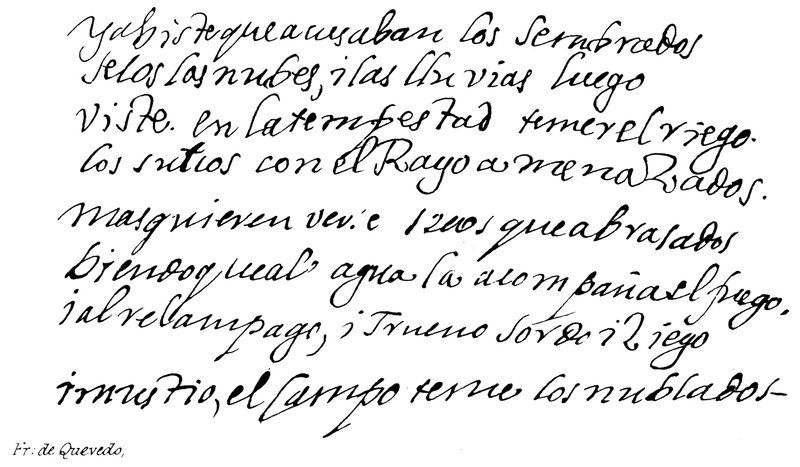 ya biste que acusaban los sembrados
secos las nubes, i las lluvias luego
viste. en la tempestad temer el riego.
los surcos con el Rayo amenazados.
mas quieren verse secos que abrasados
biendo que al agua la acompaña el fuego.
i al relampago, i Trueno sordo i ziego
i mustio, el campo teme los nublados
Fr: de Quevedo,